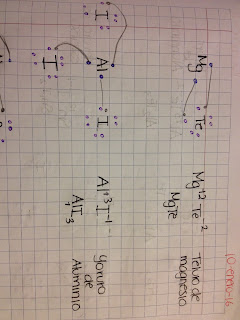 10-enero-16
Mg Te
Mg⁺² Te⁻²
MgTe
Teluro de
magnesio
I
Al I
I
Al⁺³ I⁻¹
AlI₃
de
Aluminio